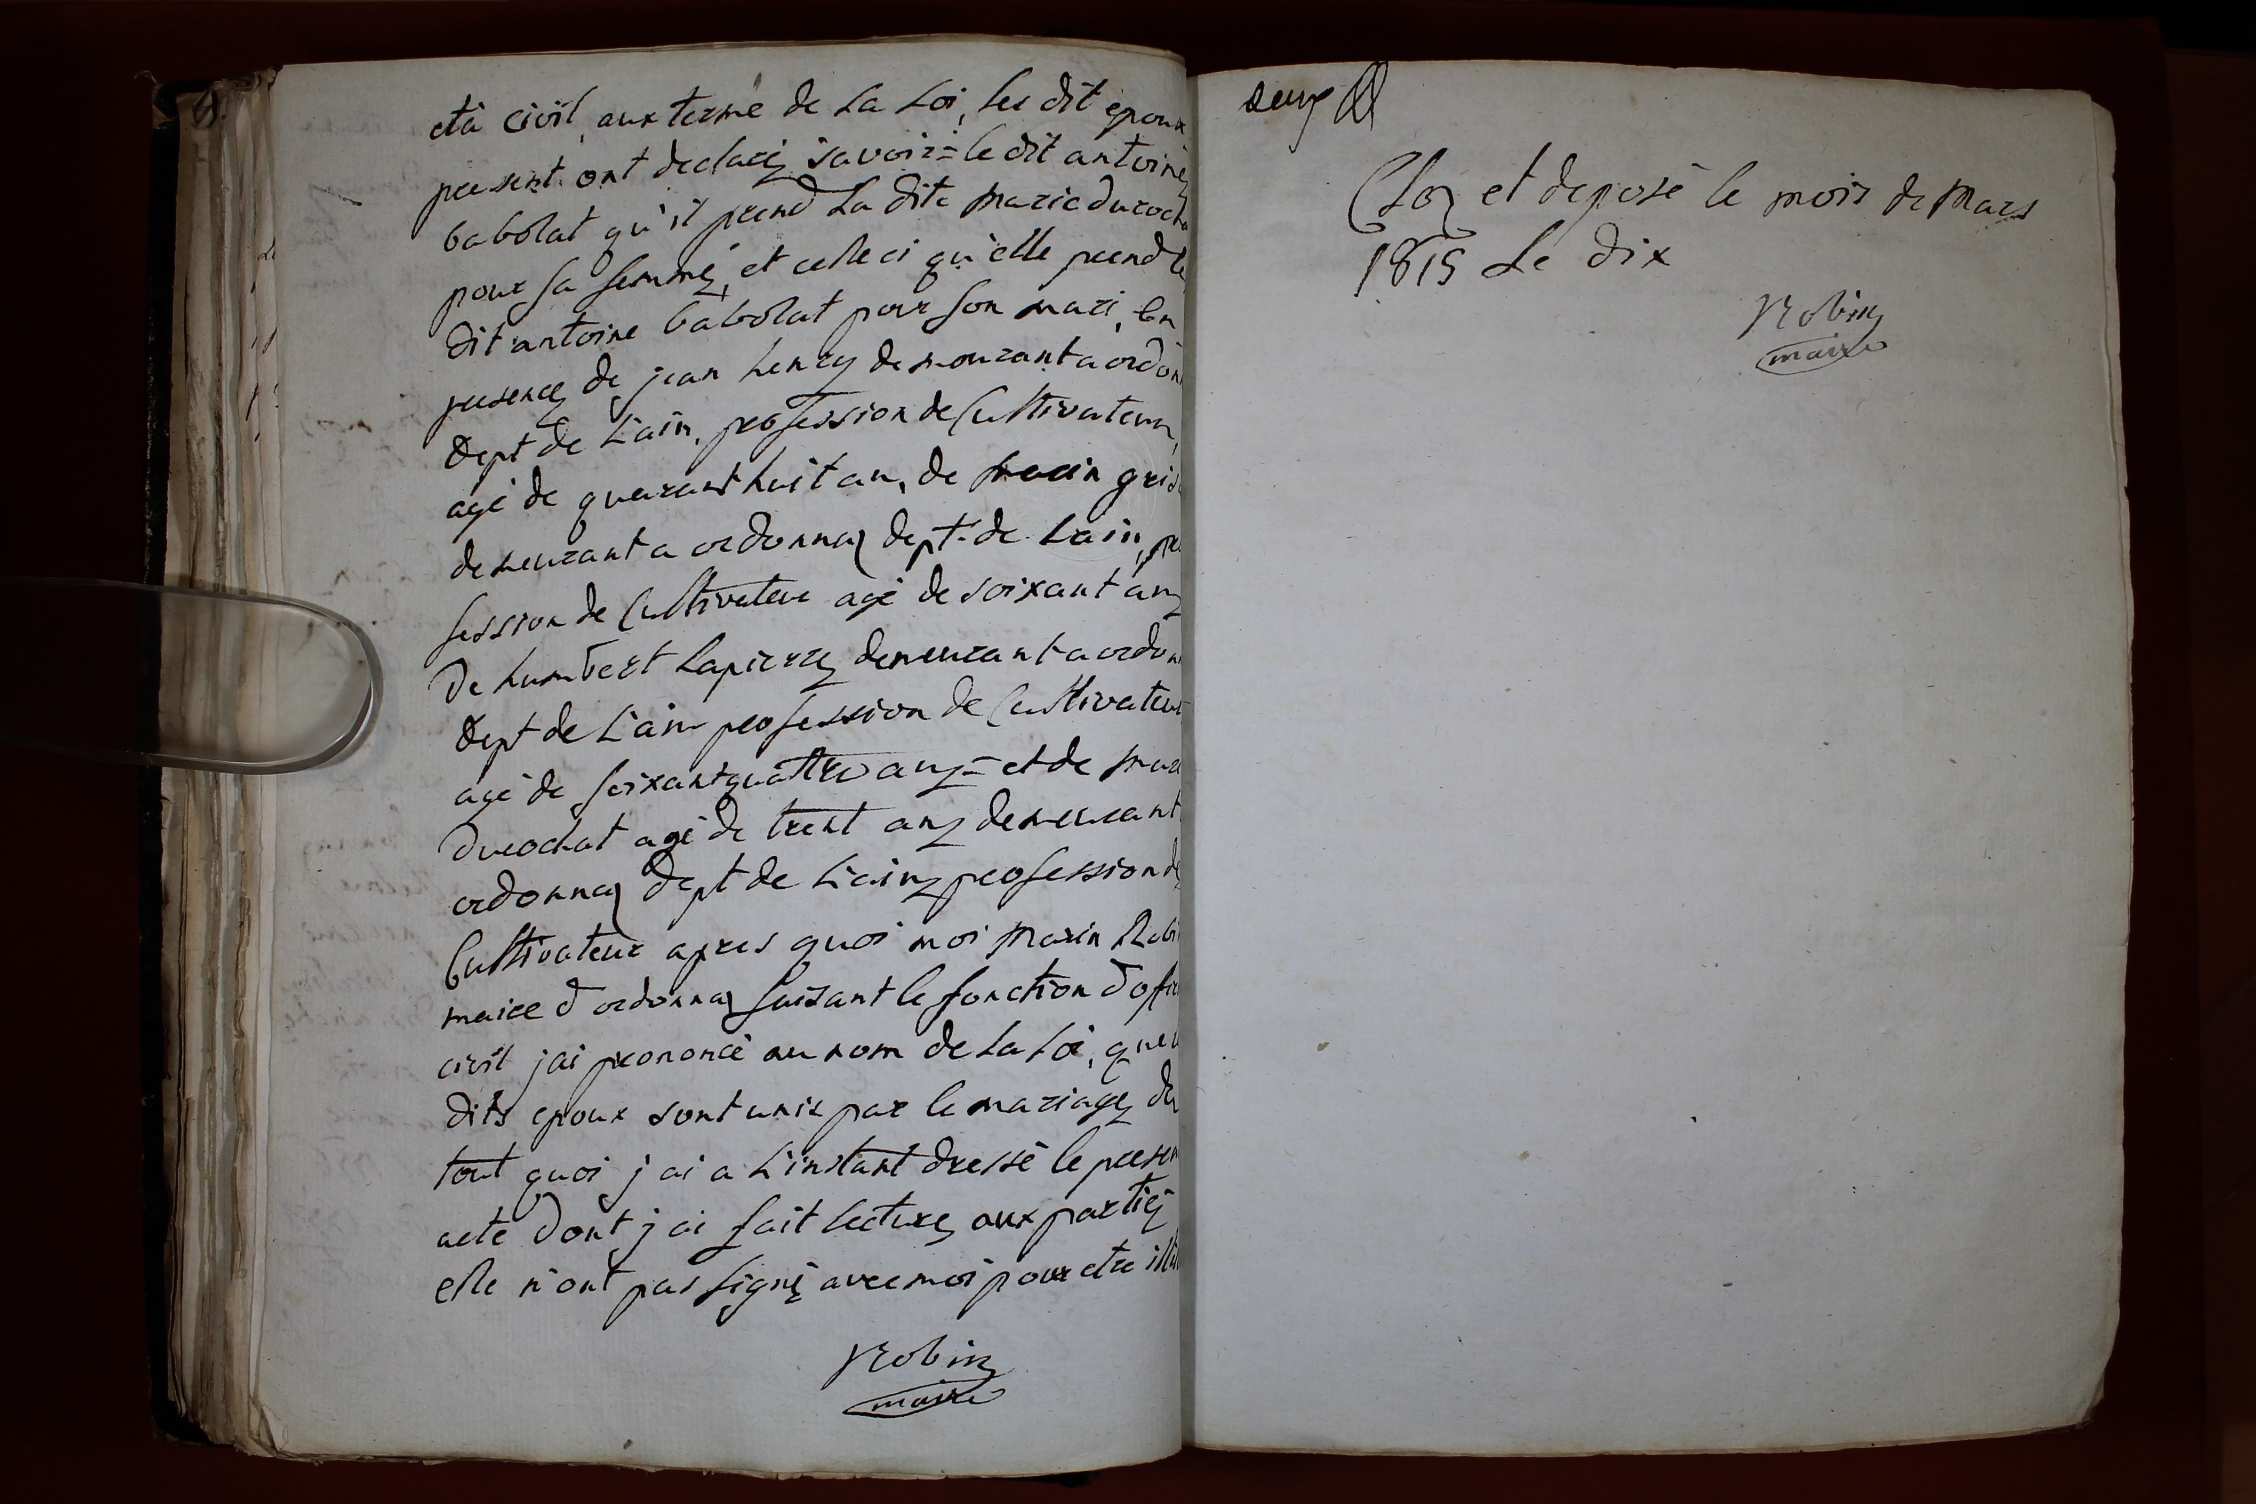 età civil aux terme de La Loi, les dit epoux
present ont declaré savoir = le dit antoine
babolat qu'il prend La dite marie duroch
pour sa femme, et celle ci qu'elle prend le
dit antoine babolat pour son mari, En
presence de jean henry demeurant a ordon
dept de L'ain, profession de Cultivateur,
agé de quarant huit an, de marin gris
demeurant a ordonnaz dept de L'ain, pro
fession de Cultivateur agé de soixant ans
De humbert Lapierre demeurant a ordon
dept de L'ain profession de Cultivateur
agé de soixant quattre ans = et de mar
Durochat agé de trent ans demeurant
ordonnaz dept de L'ain profession de
Cultivateur apres quoi moi marin Robi
maire d'ordonnaz faisant le fonction d'offi
civil j'ai prononcé au nom de La Loi, que
dits epoux sont unis par le mariage de
tout quoi j'ai a L'instant dressé le presen
acte dont j'ai fait lecture aux partie
elle n'ont pas signé avec moi pour etre illit
Robin
maire
Clos et deposé le mois de mars
1815 Le dix
Robin
maire